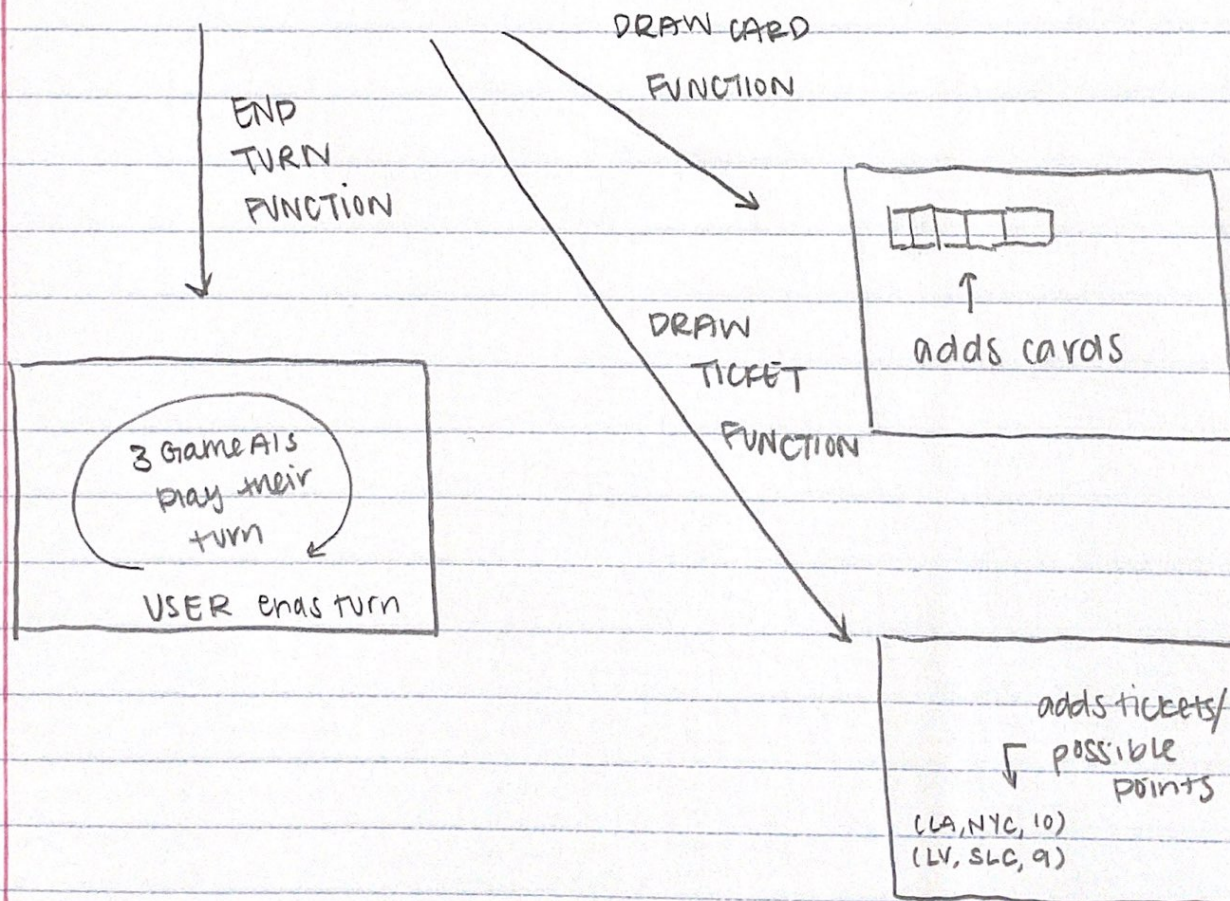 DRAW CARD
FUNCTION
END
TURN
FUNCTION
adds cards
DRAW
TICKET
FUNCTION
3 Game AIs
play their
turn
USER ends turn
adds tickets/
possible
points
(LA, NYC, 10)
(LV, SLC, 9)